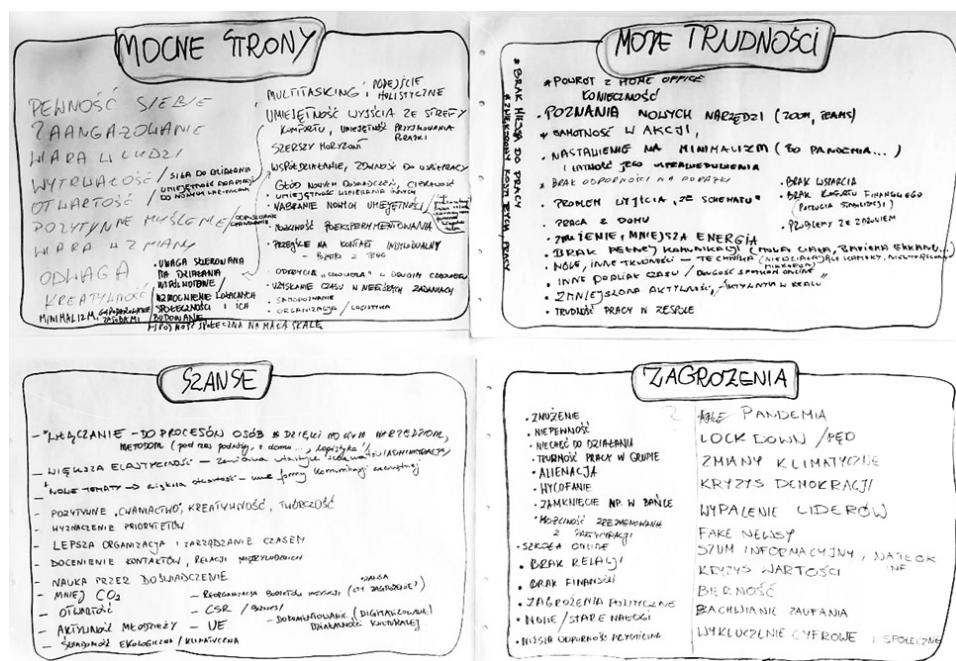 MOCNE STRONY
PEWNOŚĆ SIEBIE
ZAANGAŻOWANIE
WIARA W LUDZI
WYTRWAŁOŚĆ / SIŁA DO DZIAŁANIA
UMIEJĘTNOŚĆ ADAPTACJI
DO NOWYCH WARUNKÓW
OTWARTOŚĆ
POZYTYWNE MYŚLENIE /
WIARA W ZMIANY
ODWAGA
KREATYWNOŚĆ
MINIMALIZM, GOSPODAROWANIE
ZASOBAMI
• UWAGA SKIEROWANA
NA DZIAŁANIA
WSPÓLNOTOWE /
WZMOCNIENIE LOKALNYCH
SPOŁECZNOŚCI I ICH
BUDOWANIE
SPOŁECZNA NA MAŁĄ SKALĘ
MULTITASKING I PODEJŚCIE
HOLISTYCZNE
UMIEJĘTNOŚĆ WYJŚCIA ZE STREFY
KOMFORTU, UMIEJĘTNOŚĆ PRZYJMOWANIA
PORAŻKI
SZERSZY HORYZONT
WSPÓŁDZIAŁANIE, ZDOLNOŚĆ DO WSPÓŁPRACY
GŁÓD NOWYCH DOŚWIADCZEŃ, CIEKAWOŚĆ
• UMIEJĘTNOŚĆ WSPIERANIA INNYCH
• NABRANIE NOWYCH UMIEJĘTNOŚCI
• MOŻLIWOŚĆ POEKSPERYMENTOWANIA
• PRZEJŚCIE NA KONTAKT INDYWIDUALNY
• ODKRYCIA „CZŁOWIEKA" W DRUGIM CZŁOWIEKU
• UZYSKANIE CZASU W NIEKTÓRYCH ZADANIACH
• SAMOPOZNANIE
• ORGANIZACJA / LOGISTYKA
MOJE TRUDNOŚCI
* BRAK MIEJSCA DO PRACY
* POWRÓT Z HOME OFFICE
KONIECZNOŚĆ
• POZNANIA NOWYCH NARZĘDZI (ZOOM, TEAMS)
* SAMOTNOŚĆ W AKCJI,
• NASTAWIENIE NA MINIMALIZM (BO PANDEMIA...)
I ŁATWOŚĆ JEGO USPRAWIEDLIWIENIA
* BRAK ODPORNOŚCI NA PORAŻKI
• PROBLEM WYJŚCIA „ZE SCHEMATU"
• PRACA Z DOMU
• ZMĘCZENIE, MNIEJSZA ENERGIA
• BRAK PEŁNEJ KOMUNIKACJI (MOWA CIAŁA, BARIERA EKRANU...)
• NOWE, INNE TRUDNOŚCI – TECHNIKA (NIEDZIAŁAJĄCE KAMERY,
MIKROFONY)
• INNY PODZIAŁ CZASU / DŁUGOŚĆ SPOTKAŃ ONLINE
• ZMNIEJSZONA AKTYWNOŚĆ,
• TRUDNOŚĆ PRACY W ZESPOLE
• BRAK WSPARCIA
• BRAK KOMFORTU FINANSOWEGO
(POCZUCIA STABILIZACJI)
• PROBLEMY ZE ZDROWIEM
SZANSE
– "WŁĄCZANIE – DO PROCESÓW OSÓB DZIĘKI NOWYM NARZĘDZIOM,
METODOM
– WIĘKSZA ELASTYCZNOŚĆ –
– NOWE TEMATY → większa otwartość – inne formy komunikacji zewnętrznej
– POZYTYWNE „CWANIACTWO", KREATYWNOŚĆ, TWÓRCZOŚĆ
– WYZNACZENIE PRIORYTETÓW
– LEPSZA ORGANIZACJA I ZARZĄDZANIE CZASEM
– DOCENIENIE KONTAKTÓW, RELACJI MIĘDZYLUDZKICH
– NAUKA PRZEZ DOŚWIADCZENIE
– MNIEJ CO₂
– OTWARTOŚĆ
– AKTYWNOŚĆ MŁODZIEŻY
– ŚWIADOMOŚĆ EKOLOGICZNA / KLIMATYCZNA
– CSR / BIZNES /
– UE
– DOKUMENTOWANIE (DIGITALIZOWANIE)
DZIAŁALNOŚCI KULTURALNEJ
ZAGROŻENIA
• ZNUŻENIE
• NIEPEWNOŚĆ
• NIECHĘĆ DO DZIAŁANIA
• TRUDNOŚĆ PRACY W GRUPIE
• ALIENACJA
• WYCOFANIE
• ZAMKNIĘCIE NP. W BAŃCE
* MOŻLIWOŚĆ ZREZYGNOWANIA
Z
• SZKOŁA ONLINE
• BRAK RELACJI
• BRAK FINANSÓW
• ZAGROŻENIA POLITYCZNE
• NOWE / STARE NAŁOGI
• NIŻSZA ODPORNOŚĆ PSYCHICZNA
PANDEMIA
LOCK DOWN / PĘD
ZMIANY KLIMATYCZNE
KRYZYS DEMOKRACJI
WYPALENIE LIDERÓW
FAKE NEWSY
SZUM INFORMACYJNY, NATŁOK
INF.
KRYZYS WARTOŚCI
BIERNOŚĆ
ZACHWIANIE ZAUFANIA
WYKLUCZENIE CYFROWE I SPOŁECZNE